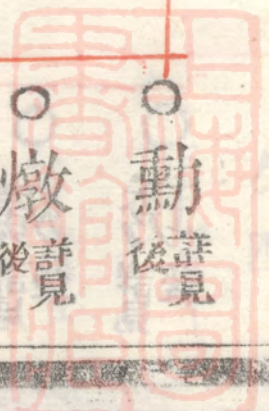 ○勳詳見後
○燉詳見後